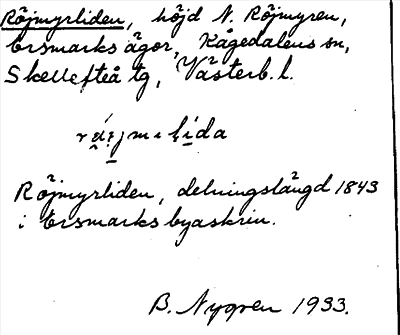 Röjmyrliden, höjd N. Röjmyren,
Ersmarks ägor, Kågedalens sn,
Skellefteå tg, Västerb. l.
Röjmyrliden, delningslängd 1843
i Ersmarks byaskrin.
B. Nygren 1933.